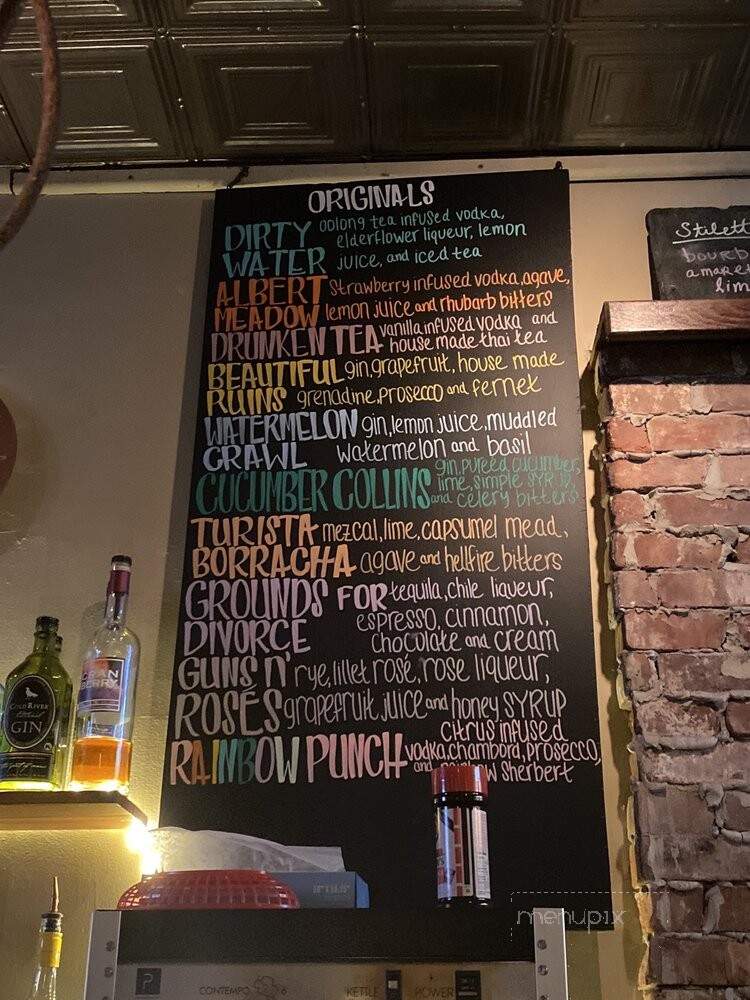 ORIGINALS
DIRTY WATER oolong tea infused vodka,
elderflower liqueur, lemon
juice, and iced tea
ALBERT MEADOW strawberry infused vodka, agave,
lemon juice and rhubarb bitters
DRUNKEN TEA vanilla infused vodka and
house made thai tea
BEAUTIFUL RUINS gin, grapefruit, house made
grenadine, prosecco and fernet
WATERMELON CRAWL gin, lemon juice, muddled
watermelon and basil
CUCUMBER COLLINS gin, pureed cucumber,
lime, simple SYRUP,
and celery bitters
TURISTA BORRACHA mezcal, lime, capsumel mead,
agave and hellfire bitters
GROUNDS FOR DIVORCE tequila, chile liqueur,
espresso, cinnamon,
chocolate and cream
GUNS N' ROSÉS rye, lillet rosé, rose liqueur,
grapefruit juice and honey SYRUP
RAINBOW PUNCH citrus infused
vodka, chambord, prosecco,
and rainbow sherbert
Stilett
bourb
amare
lim
COLD RIVER
GIN
CRAN
BERRY
CONTEMPO 6
KETTLE
POWER
menupix